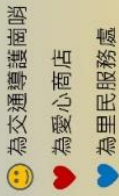 為交通導護崗哨
為愛心商店
為里民服務處